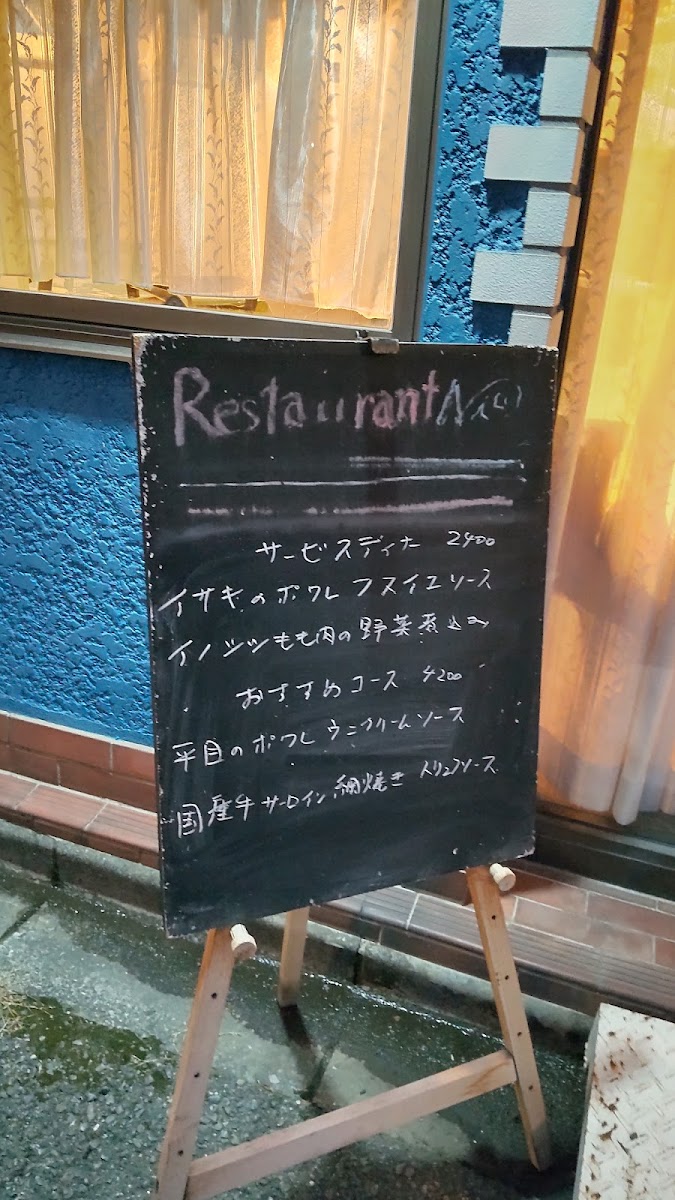 Restaurant
サービスディナー 2400
イサキのポワレ フヌイユソース
イノシシもも肉の野菜煮込み
おすすめコース 4200
平目のポワレ ウニクリームソース
国産牛サーロイン網焼き トリュフソース